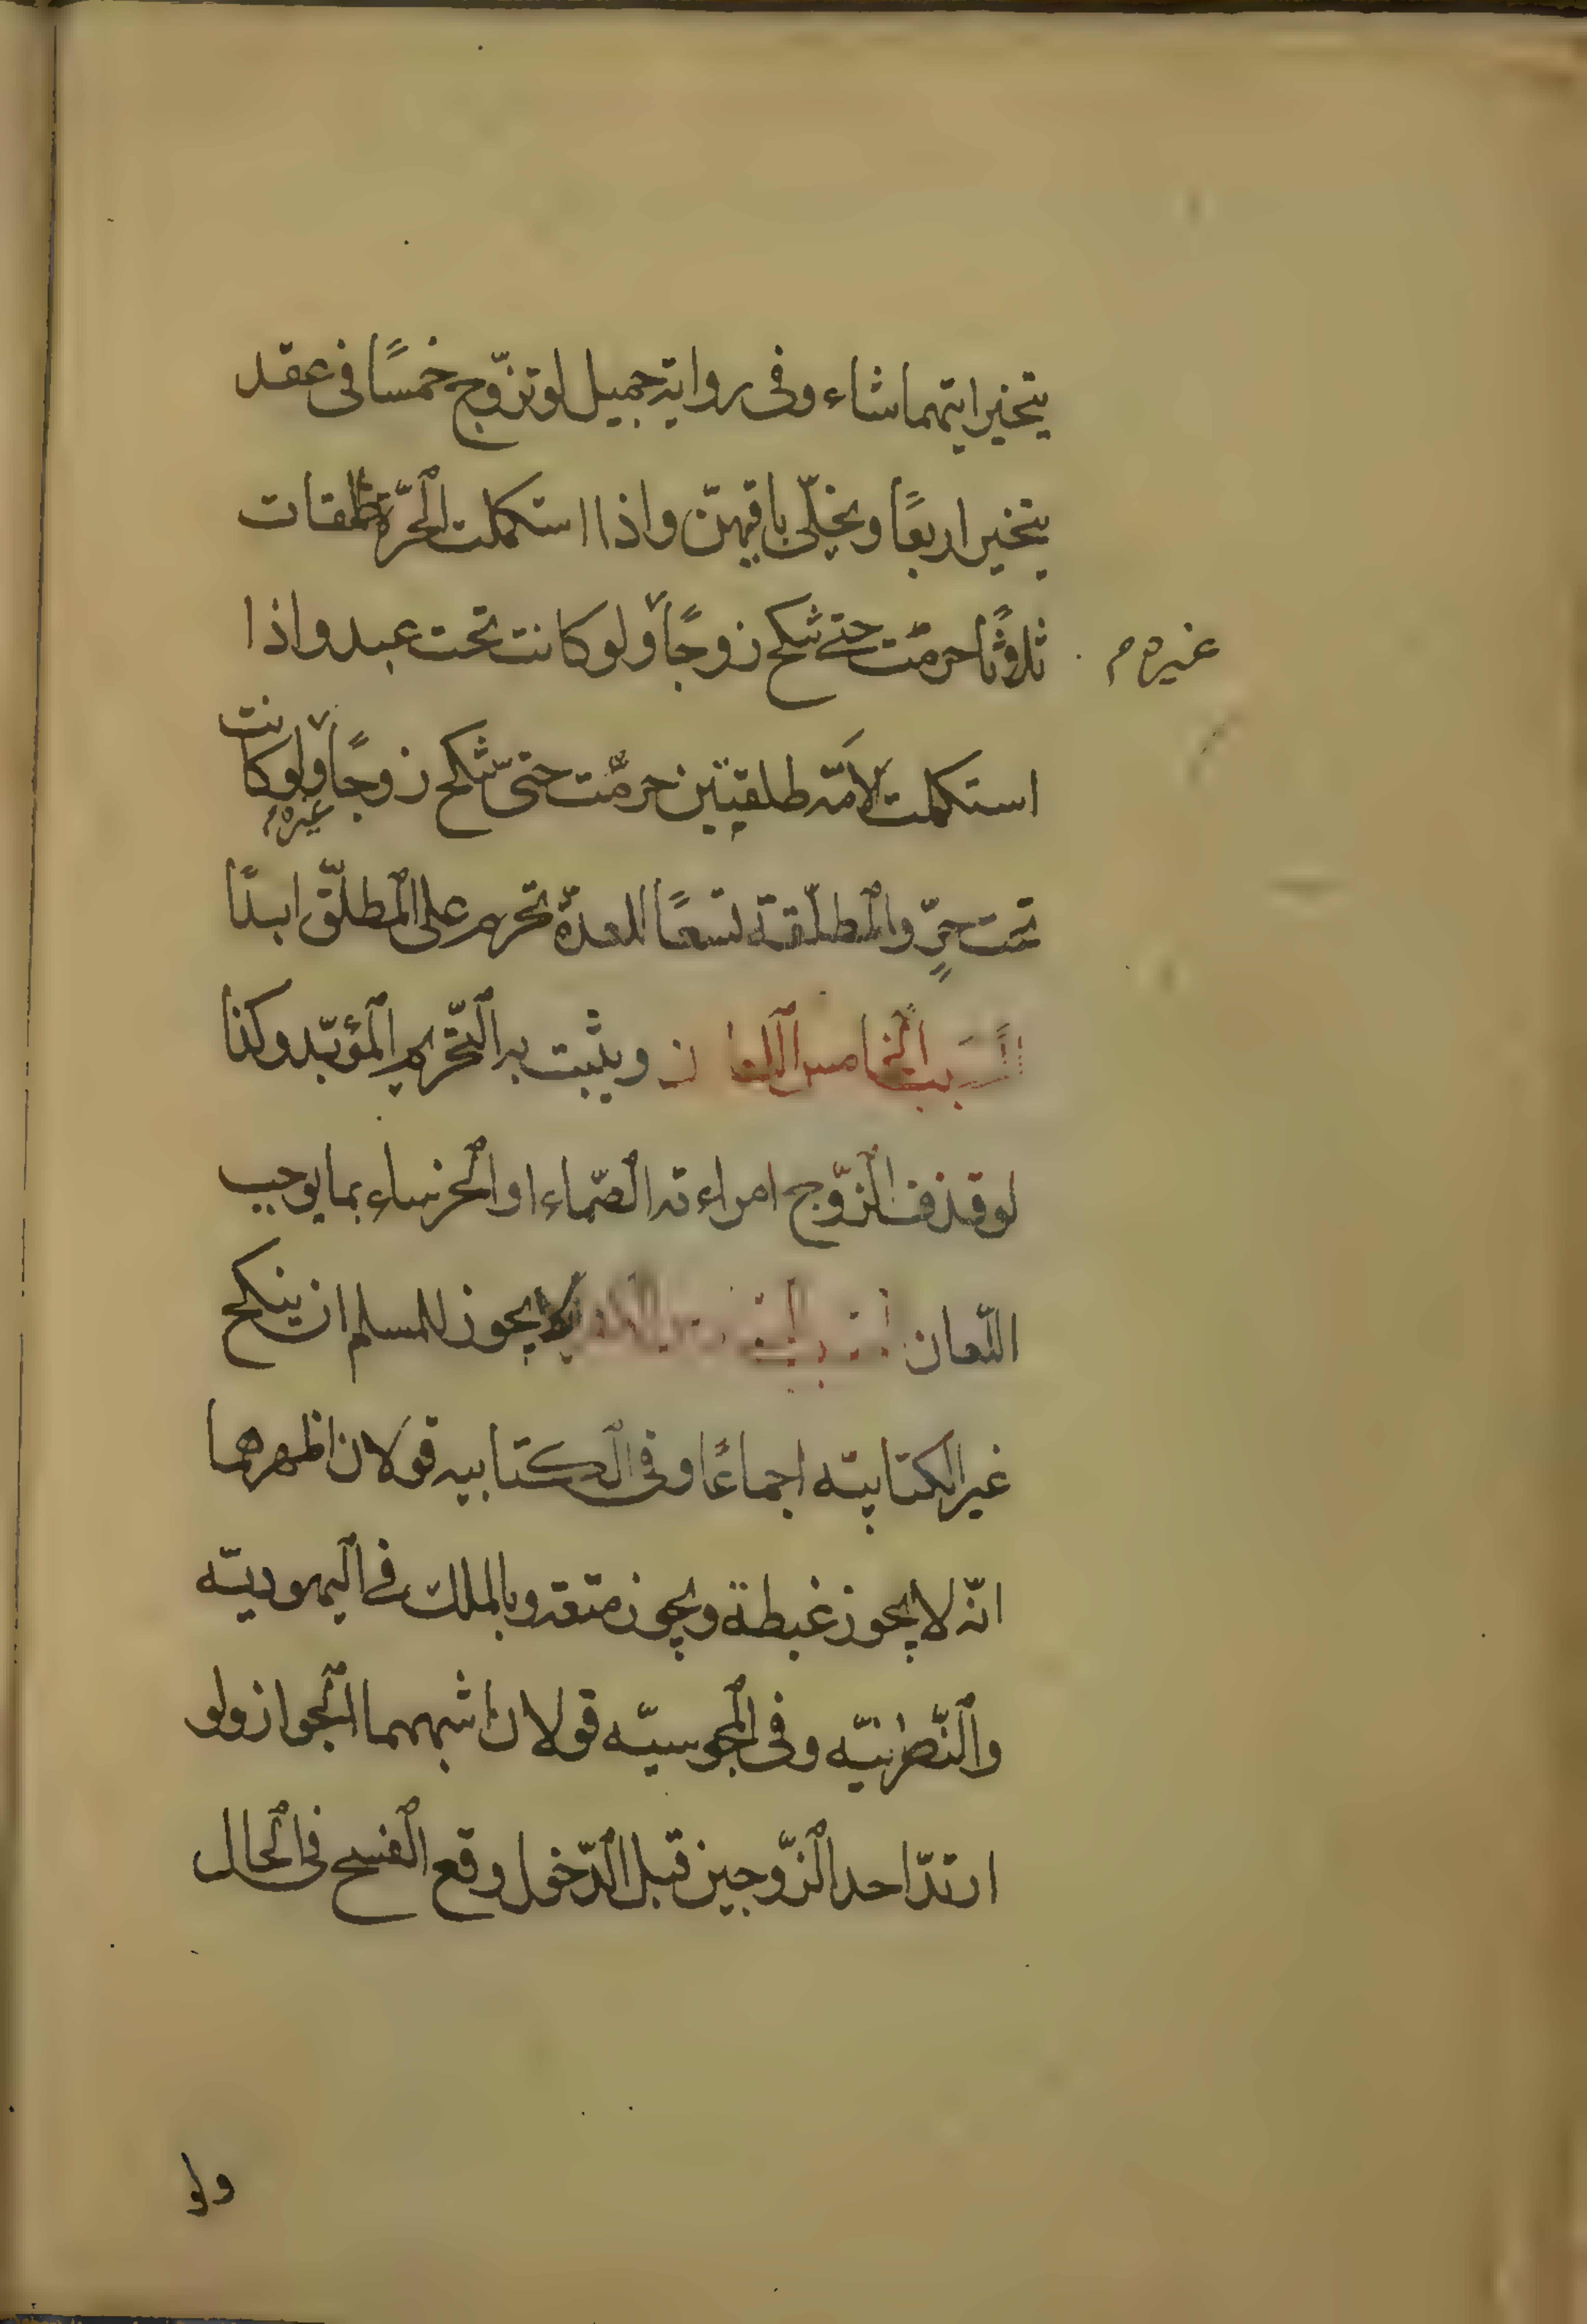 يتخيرايتهماشاء وفى رواية جميل لوتزوّج خمسًا فى عقد
يتخيراربعًا ويخلّى باقيهنّ واذا استكملت الحرّة طلقات
ثلاثًا حرمّت حتى تنكح زوجًا ولوكانت تحت عبد واذا
غيره م
استكملت الامَة طلقيتين حرمّت حتىّ تنكح زوجًا ولوكانت
غيره م
تحت حرٍّ والمطلّقة تسعًا للعدّة تحرم على المطلّق ابدًا
السَّبب الخامس اللعان ويثبت به التّحريم المؤبّد وكذا
لوقذف الزّوج امراءته الصّماء او الخرساء بما يوجب
اللّعان لا يجوز للمسلم ان ينكح
غير الكتابيّه اجماعًا وفى الكتابيه قولان اظهرهما
انّه لا يجوز غبطة ويجوز متعة وبالملك فى اليهوديّه
والنّصرنيّه وفى المجوسيّه قولان اشبههما الجواز ولو
ارتدّ احد الزّوجين قبل الدّخول وقع الفسخ فى الحال
ولو